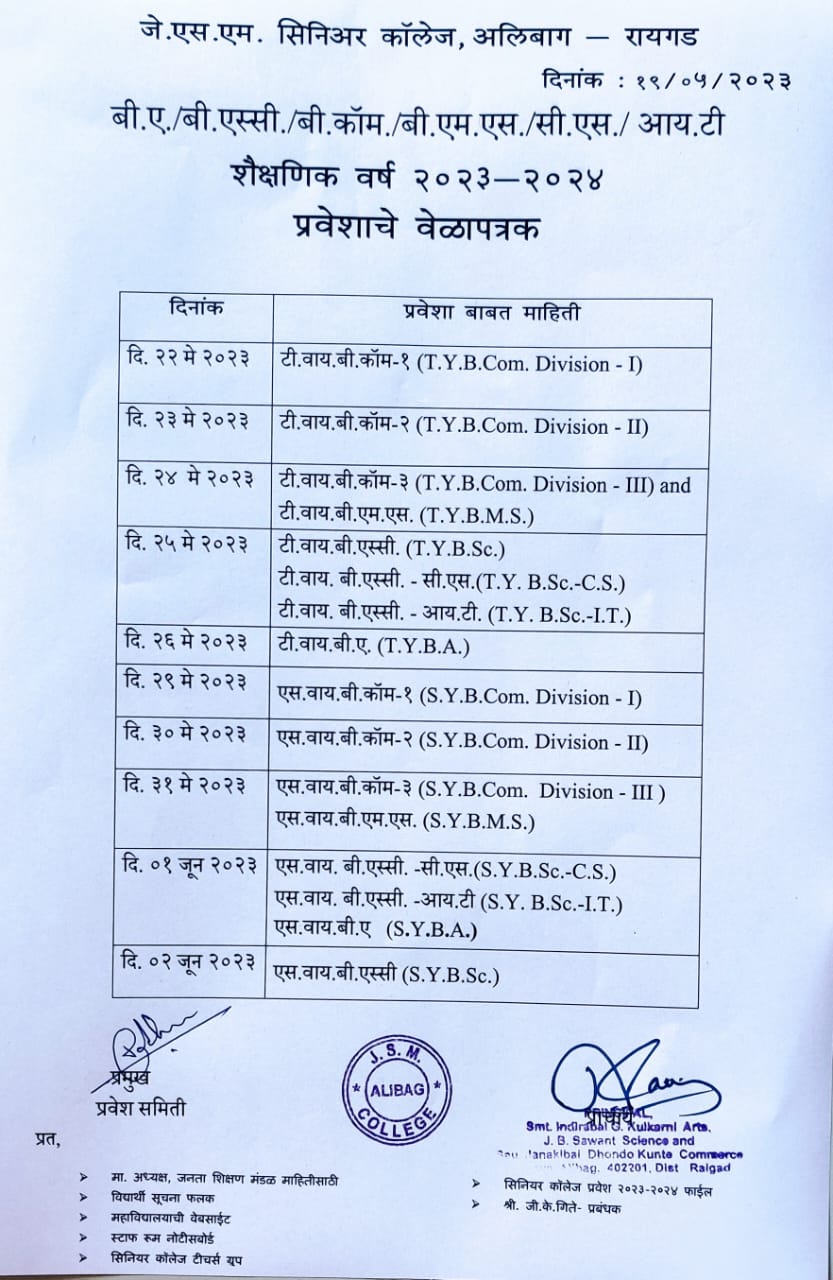 जे.एस.एम. सिनिअर कॉलेज, अलिबाग – रायगड
दिनांक : १९/०५/२०२३
बी.ए./बी.एस्सी./बी.कॉम./बी.एम.एस./सी.एस./ आय.टी
शैक्षणिक वर्ष २०२३–२०२४
प्रवेशाचे वेळापत्रक
दिनांक प्रवेशा बाबत माहिती
दि. २२ मे २०२३ टी.वाय.बी.कॉम-१ (T.Y.B.Com. Division - I)
दि. २३ मे २०२३ टी.वाय.बी.कॉम-२ (T.Y.B.Com. Division - II)
दि. २४ मे २०२३ टी.वाय.बी.कॉम-३ (T.Y.B.Com. Division - III) and
टी.वाय.बी.एम.एस. (T.Y.B.M.S.)
दि. २५ मे २०२३ टी.वाय.बी.एस्सी. (T.Y.B.Sc.)
टी.वाय. बी.एस्सी. - सी.एस.(T.Y. B.Sc.-C.S.)
टी.वाय. बी.एस्सी. - आय.टी. (T.Y. B.Sc.-I.T.)
दि. २६ मे २०२३ टी.वाय.बी.ए. (T.Y.B.A.)
दि. २९ मे २०२३ एस.वाय.बी.कॉम-१ (S.Y.B.Com. Division - I)
दि. ३० मे २०२३ एस.वाय.बी.कॉम-२ (S.Y.B.Com. Division - II)
दि. ३१ मे २०२३ एस.वाय.बी.कॉम-३ (S.Y.B.Com. Division - III )
एस.वाय.बी.एम.एस. (S.Y.B.M.S.)
दि. ०१ जून २०२३ एस.वाय. बी.एस्सी. -सी.एस.(S.Y.B.Sc.-C.S.)
एस.वाय. बी.एस्सी. -आय.टी (S.Y. B.Sc.-I.T.)
एस.वाय.बी.ए (S.Y.B.A.)
दि. ०२ जून २०२३ एस.वाय.बी.एस्सी (S.Y.B.Sc.)
प्रमुख
प्रवेश समिती
J. S. M.
* ALIBAG *
COLLEGE
प्राचार्य
Smt. Indirabai G. Kulkarni Arts,
J. B. Sawant Science and
Sau. Janakibai Dhondo Kunte Commerce
Alibag. 402201, Dist Raigad
प्रत,
➤ मा. अध्यक्ष, जनता शिक्षण मंडळ माहितीसाठी
➤ विद्यार्थी सूचना फलक
➤ महाविद्यालयाची वेबसाईट
➤ स्टाफ रूम नोटीसबोर्ड
➤ सिनियर कॉलेज टीचर्स ग्रूप
➤ सिनियर कॉलेज प्रवेश २०२३-२०२४ फाईल
➤ श्री. जी.के.गिते- प्रबंधक